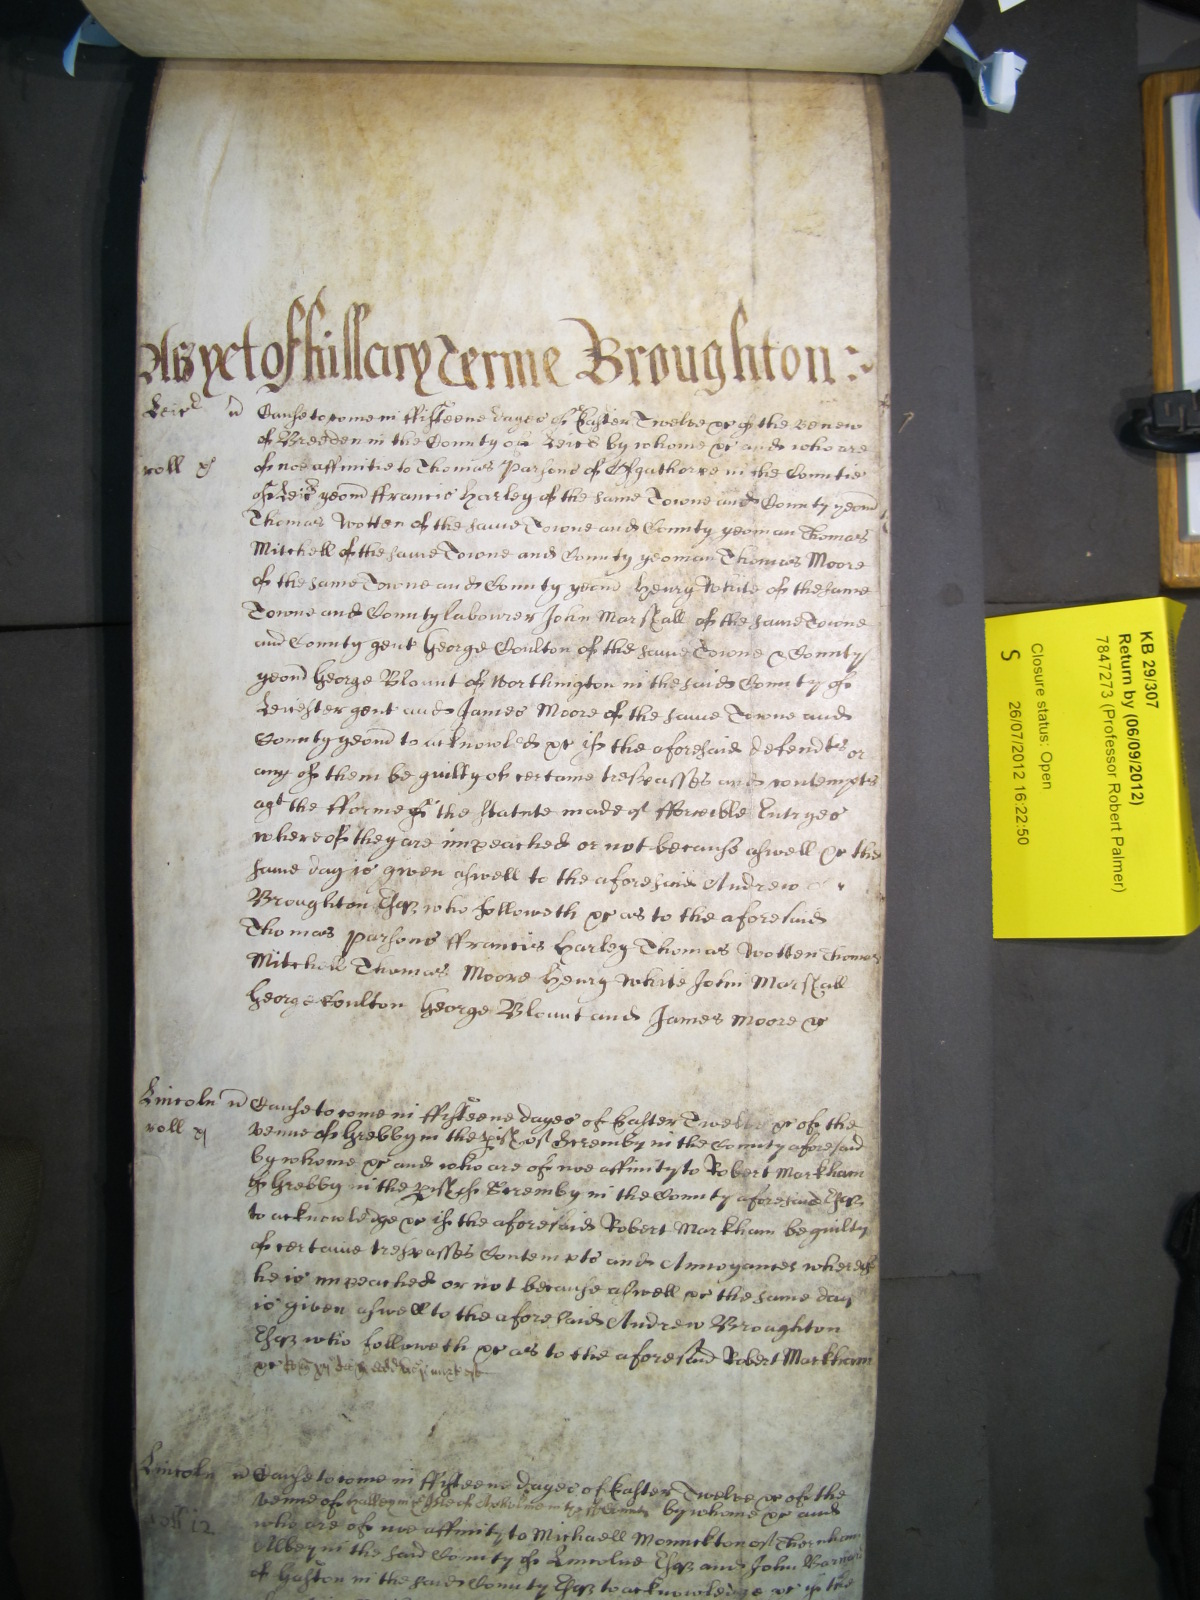 As yet of hillary Terme Broughton :~
Leicr Cause to come in fifteene dayes of Easter Twelve &c of the venew
of Breeden in the County of Leicr by whome &c and who are
roll x of noe affinitie to Thomas Parsons of Osgathorpe in the Countie
of Leicr yeom ffrancis Harley of the same Towne and County yeom
Thomas Wotten of the same Towne and County yeoman Thomas
Mitchell of the same Towne and County yeoman Thomas Moore
of the same Towne and County yeom Henry White of the same
Towne and County labourer John Marshall of the same Towne
and County gent George Coulton of the same Towne & County
yeom George Blount of Worthington in the said County of
Leicester gent and James Moore of the same Towne and
County yeom to acknowled &c if the aforesaid defendts or
any of them be guilty of certaine trespasses and contempts
agt the fforme of the statute made of fforcible Entryes
whereof they are impeached or not because aswell &c the
same day is given aswell to the aforesaid Andrew
Broughton Esqr who followeth &c as to the aforesaid
Thomas Parsons ffrancis Harley Thomas Wotten Thomas
Mitchell Thomas Moore Henry White John Marshall
George Coulton George Blount and James Moore &c
Lincoln Cause to come in ffifteene dayes of Easter Twelve &c of the
roll xj venue of Grebby in the pish of Scremby in the County aforesaid
by whome &c and who are of noe affinity to Robert Markham
of Grebby in the pish of Scremby in the County aforesaid Esqr
to acknowledge &c if the aforesaid Robert Markham be guilty
of certaine trespasses Contempts and Annoyances whereof
he is impeached or not because aswell &c the same day
is given aswell to the aforesaid Andrew Broughton
Esqr who followeth &c as to the aforesaid Robert Markham
&c
Lincoln Cause to come in ffifteene dayes of Easter Twelve &c of the
venue of by whome &c and
roll 12 who are of noe affinity to Michaell Monnckton of Thornham
Abbey in the said County of Lincolne Esqr and John
of in the said County Esqr to acknowledge &c if the
KB 29/307
Return by (06/09/2012)
7847273 (Professor Robert Palmer)
Closure status: Open
S 26/07/2012 16:22:50